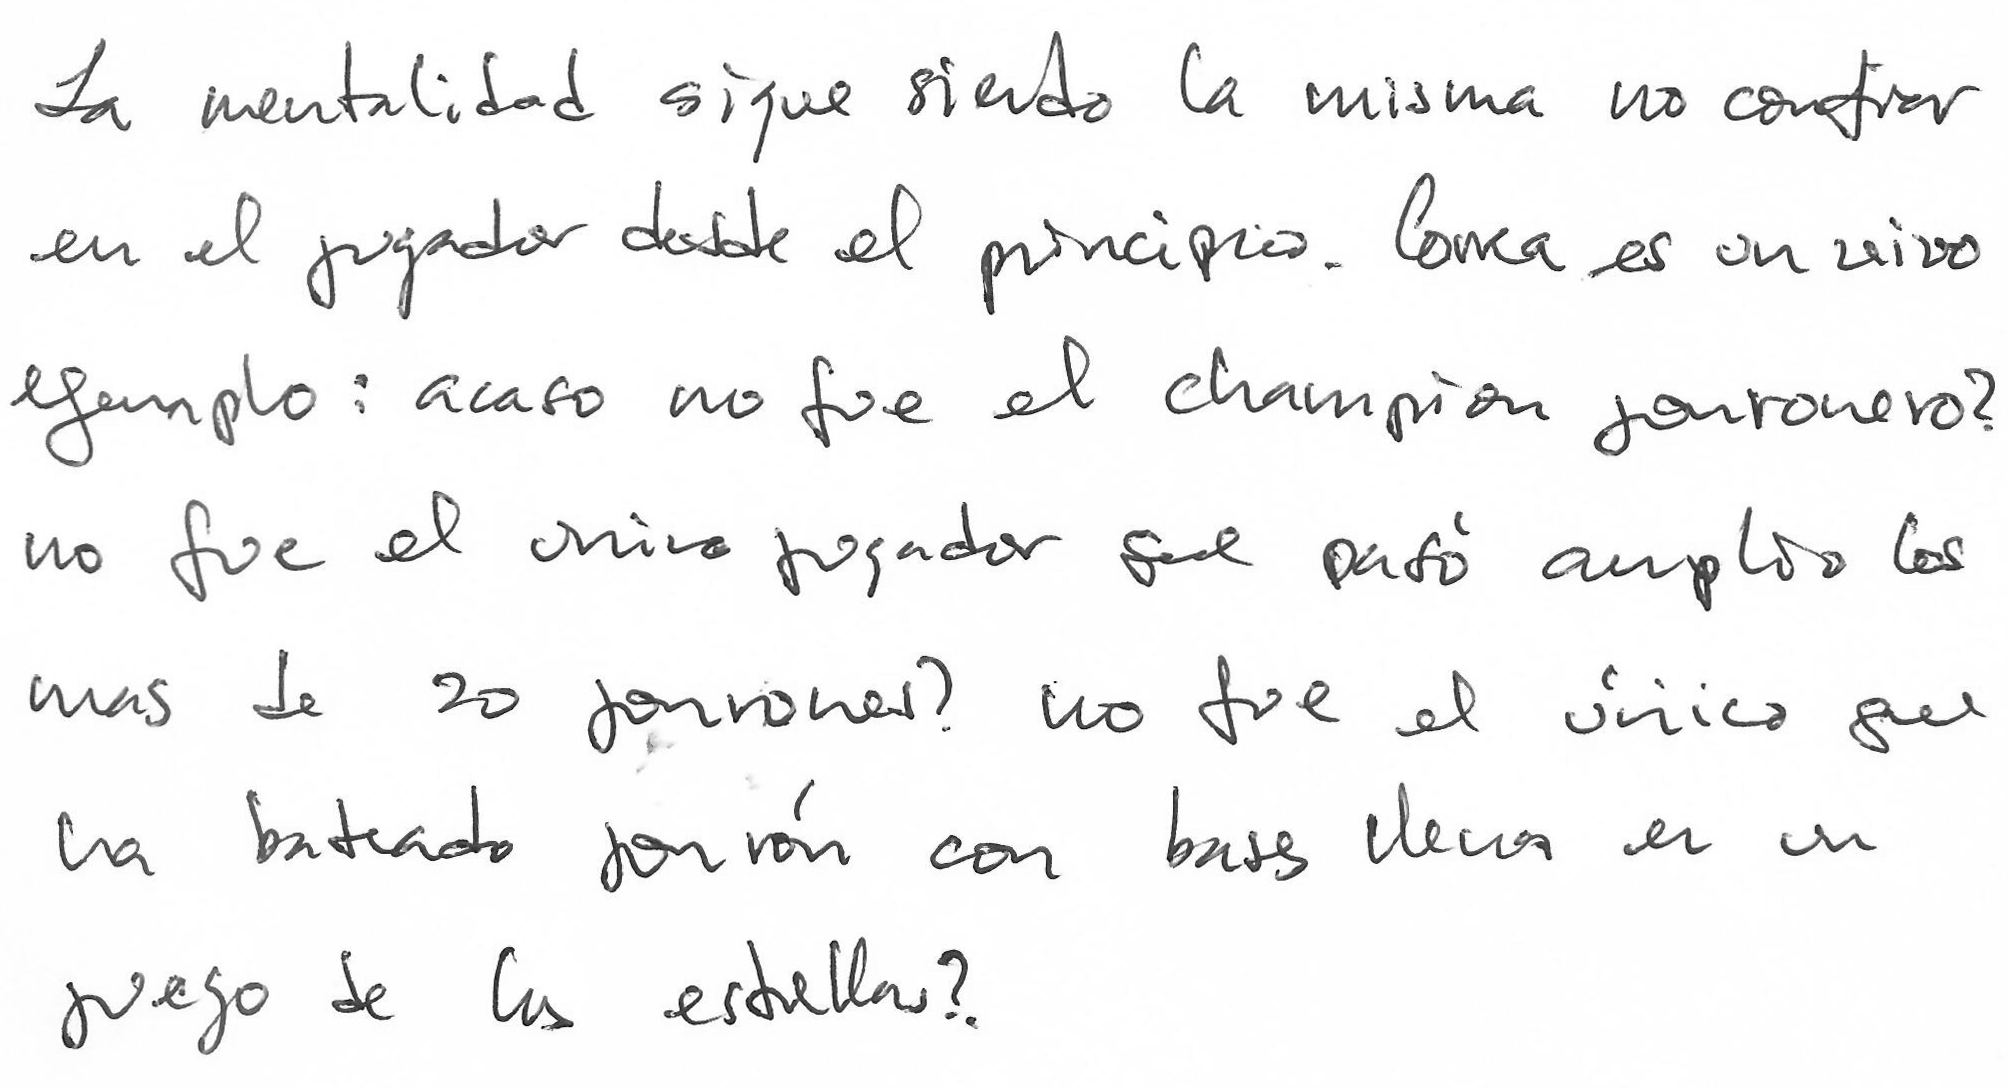 La mentalidad sigue siendo la misma no confiar
en el jugador desde el principio. es un vivo
ejemplo: acaso no fue el champion jonronero?
no fue el unico jugador que pasó amplio los
mas de 20 jonrones? no fue el único que
ha bateado jonrón con bases llenas en un
juego de las estrellas?